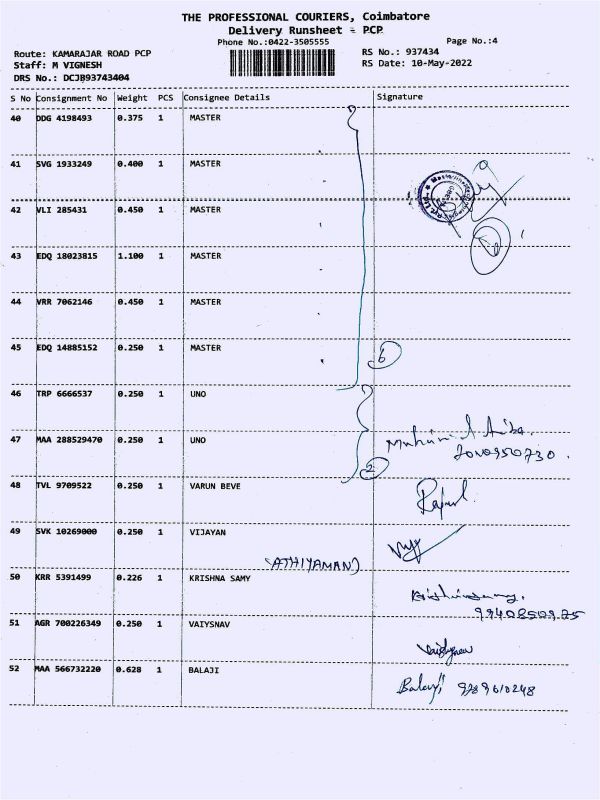 THE PROFESSIONAL COURIERS, Coimbatore
Delivery Runsheet - PCP
Phone No.:0422-3505555
Page No.:4
Route: KAMARAJAR ROAD PCP
RS No.: 937434
Staff: M VIGNESH
RS Date: 10-May-2022
DRS No.: DCJB93743404
S No Consignment No Weight PCS Consignee Details Signature
40 DDG 4198493 0.375 1 MASTER
41 SVG 1933249 0.400 1 MASTER
42 VLI 285431 0.450 1 MASTER
43 EDQ 18023815 1.100 1 MASTER
44 VRR 7062146 0.450 1 MASTER
45 EDQ 14885152 0.250 1 MASTER 6
46 TRP 6666537 0.250 1 UNO
47 MAA 288529470 0.250 1 UNO
2
48 TVL 9709522 0.250 1 VARUN BEVE
49 SVK 10269000 0.250 1 VIJAYAN
(ATHIYAMAN)
50 KRR 5391499 0.226 1 KRISHNA SAMY
9940850975
51 AGR 700226349 0.250 1 VAIYSNAV
52 MAA 566732220 0.628 1 BALAJI
Balaji 9789610248